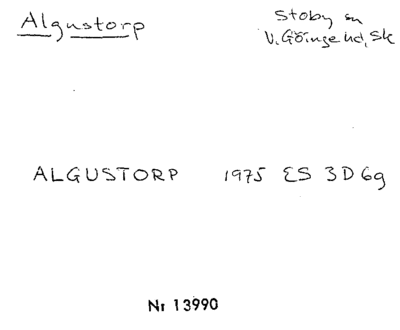 Algustorp
Stoby sn
V. Göinge hd, Sk
ALGUSTORP 1975 ES 3D6g
Nr 13990